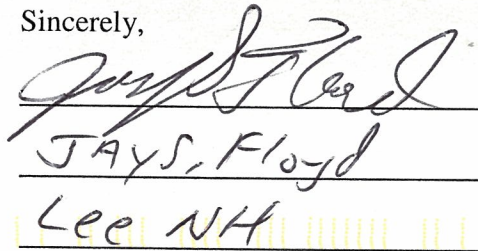 Sincerely,
Jay S Floyd
JAY S. Floyd
Lee NH